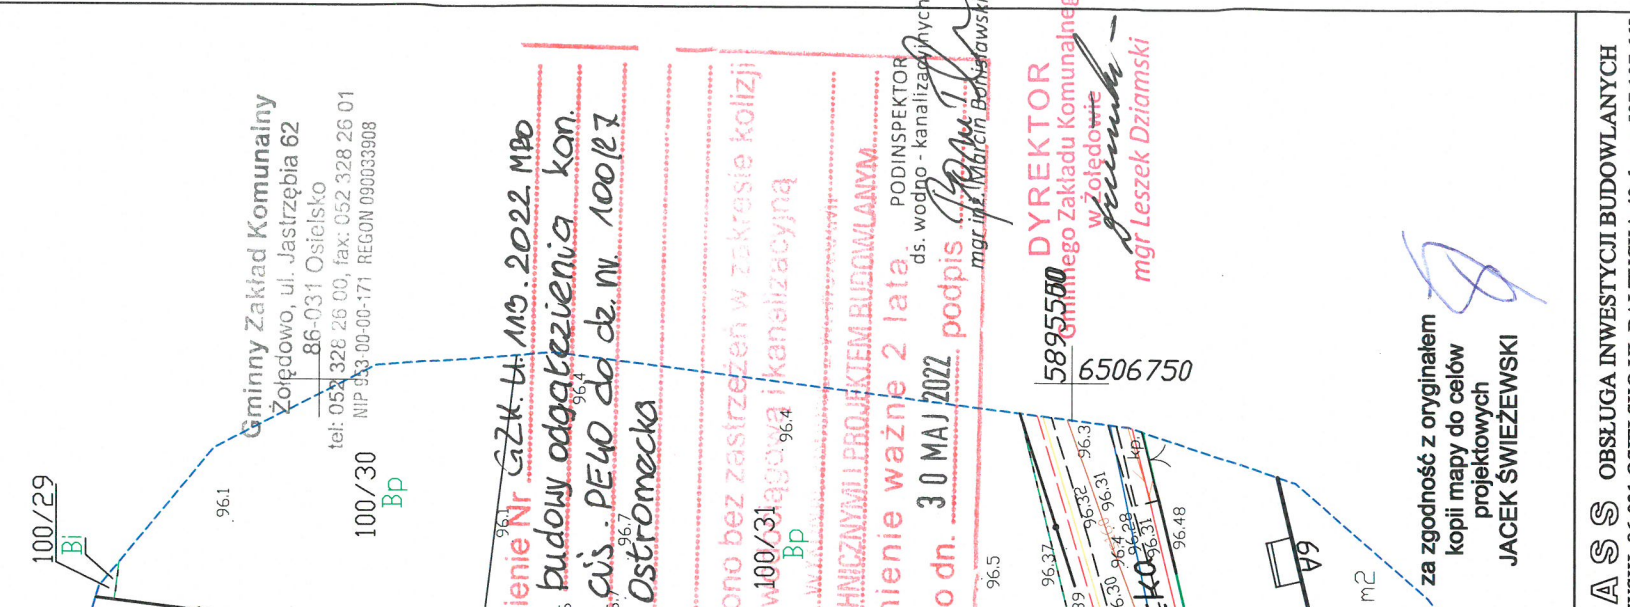 Gminny Zakład Komunalny
Żołędowo, ul. Jastrzębia 62
86-031 Osielsko
tel: 052 328 26 00, fax: 052 328 26 01
NIP 953-00-00-171 REGON 090033908
100/29
Bi
96.1
100/30
Bp
ienie Nr GZK.U.113.2022 MBO
96.1
budowy odgałęzienia kan.
96.4
ciś. PE40 do dz. nr. 100/27
96.7
Ostromecka
ono bez zastrzeżeń w zakresie kolizji
wodociągową i kanalizacyjną
100/31
Bp
96.4
HNICZNYMI I PROJEKTEM BUDOWLANYM
nienie ważne 2 lata.
o dn. 30 MAJ 2022 podpis
PODINSPEKTOR
ds. wodno - kanalizacyjnych
mgr inż. Marcin Bonisławski
DYREKTOR
Gminnego Zakładu Komunalnego
w Żołędowie
mgr Leszek Dziamski
5895550
6506750
96.5
96.37
96.3
96.32
96.31
96.4
96.28
96.31
96.30
96.48
kp.
ka
A9
m2
za zgodność z oryginałem
kopii mapy do celów
projektowych
JACEK ŚWIEŻEWSKI
A S S OBSŁUGA INWESTYCJI BUDOWLANYCH